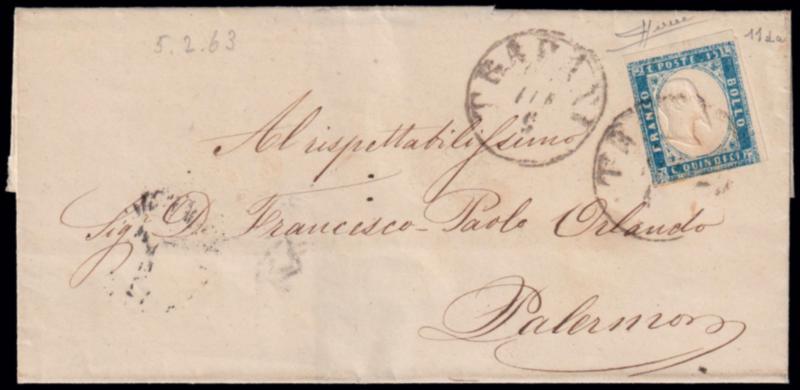 5.2.63
11da
TRAPANI
FEB
5
C. POSTE 15
FRANCO
BOLLO
C. QUINDICI
Al rispettabilissimo
Sigr. D. Francesco-Paolo Orlando
Palermo